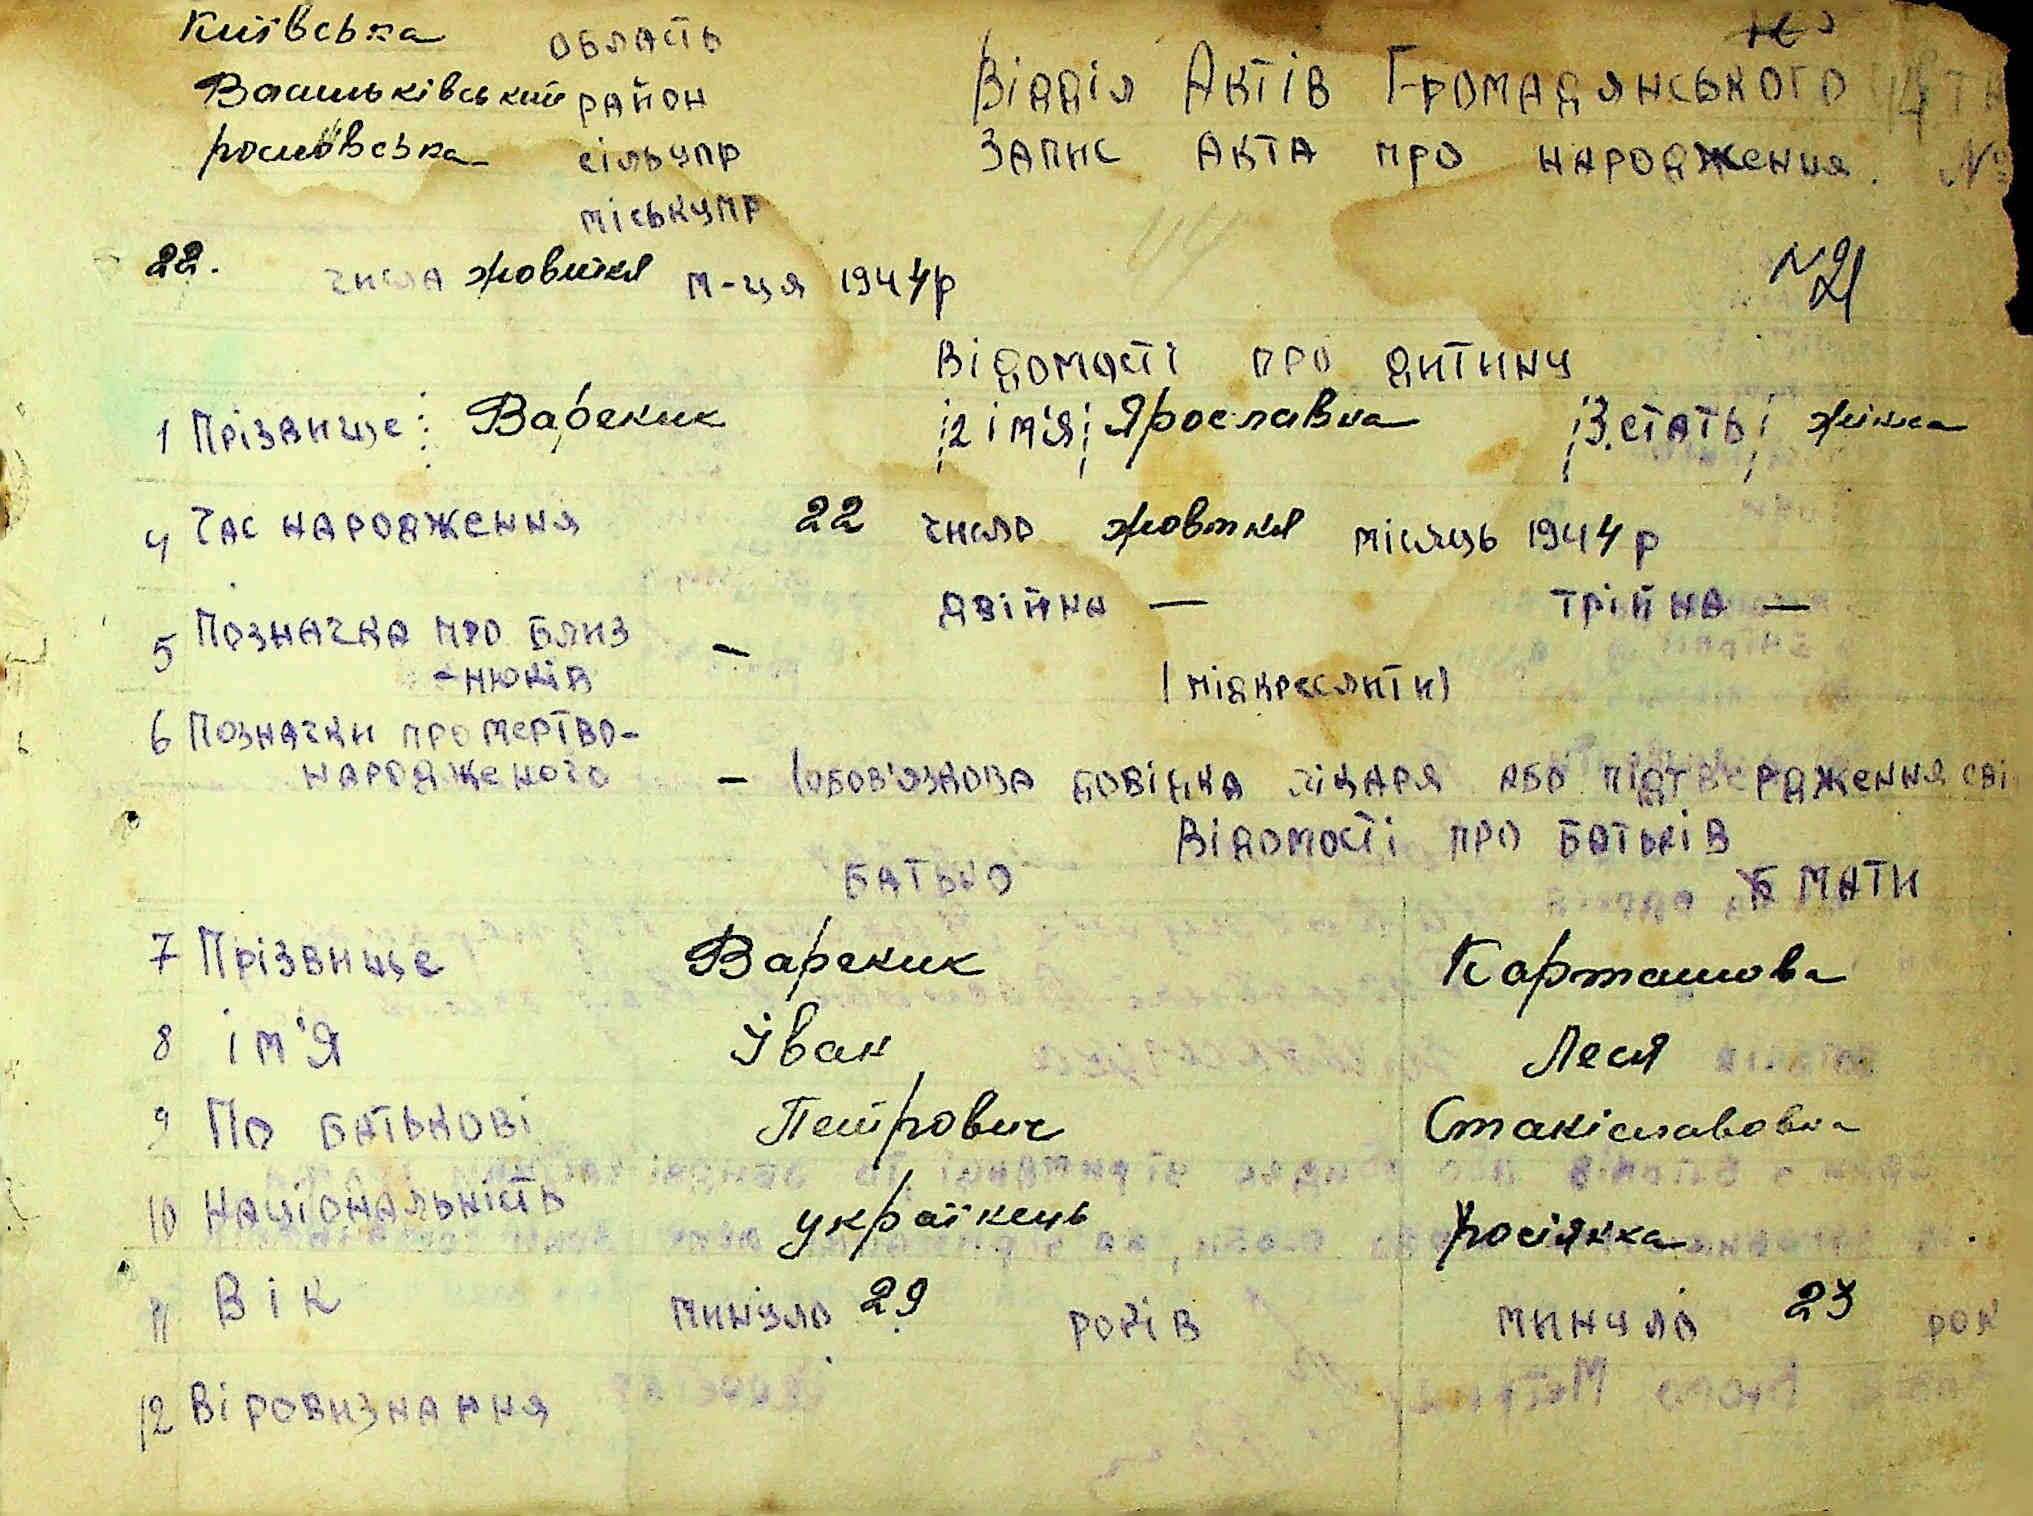 Київська область
Васильківський район
сільупр
міськупр
Відділ Актів Громадянського
Запис акта про народження. №
22. числа жовтня м-ця 1944 р
№ 21
Відомості про дитину
1 Прізвище: Варекик 2 ім'я Ярославна 3. стать жінка
4 Час народження 22 число жовтня місяць 1944 р
5 Позначка про близ - двійна — трійна —
-нюків (підкреслити)
6 Позначки про мертво-
народженого - (обов'язкова довідка лікаря або підтвердження сві
Відомості про батьків
Батько Мати
7 Прізвище Варекик Карташова
8 ім'я Іван Леся
9 По батькові Петрович Станіславовна
10 Національність українець росіянка
11 Вік минуло 29 років минуло 23 рок
12 Віровизнання